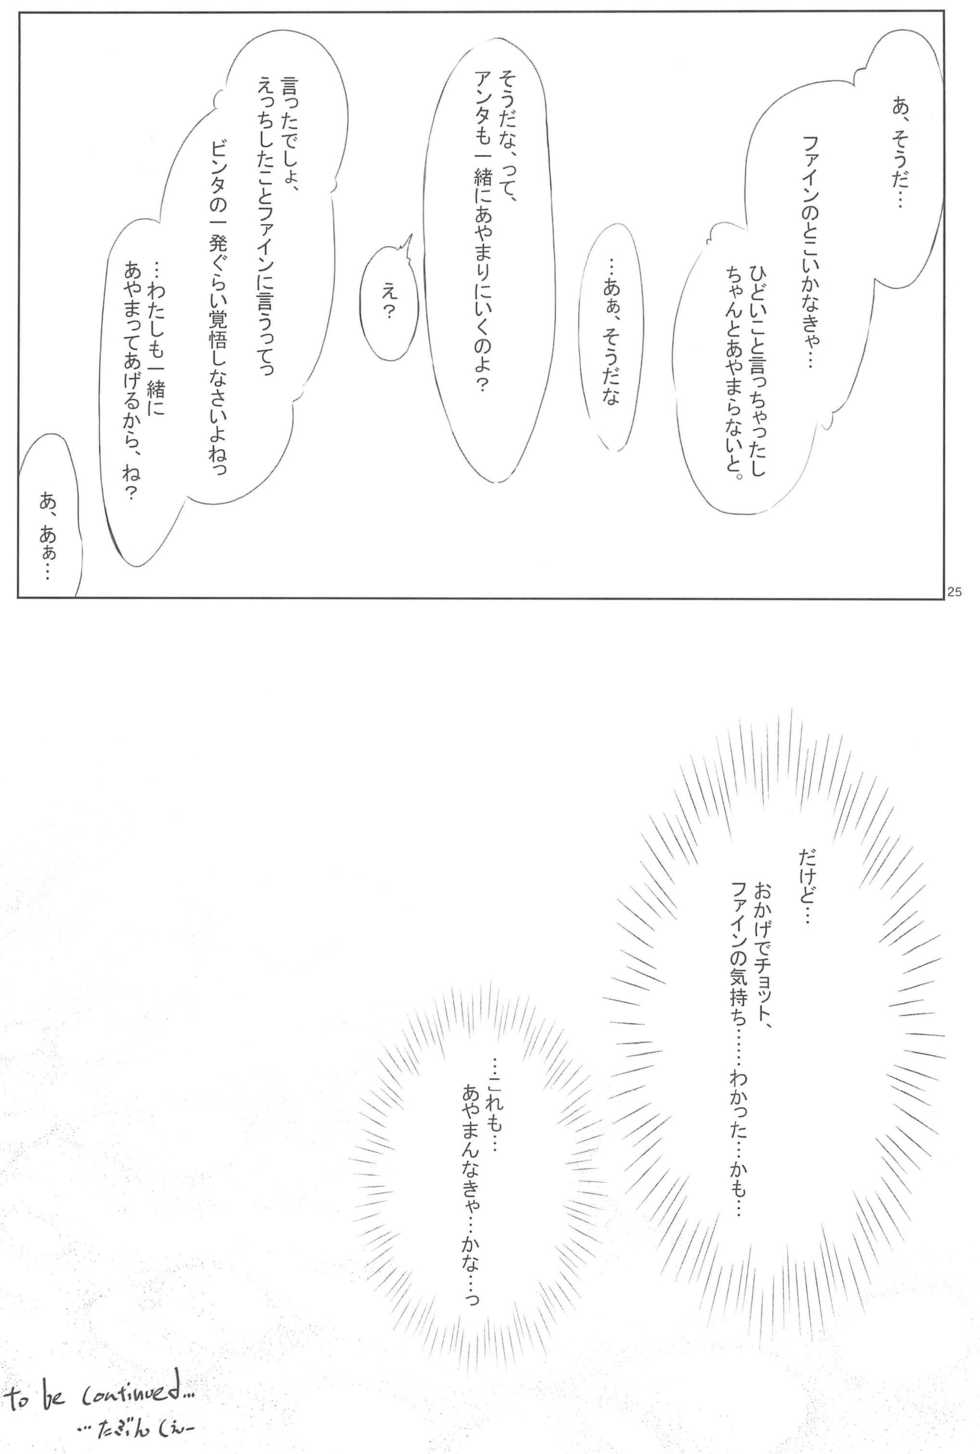 あ、そうだ…
ファインのとこいかなきゃ…
ひどいこと言っちゃったし
ちゃんとあやまらないと。
…あぁ、そうだな
そうだな、って、
アンタも一緒にあやまりにいくのよ？
え？
言ったでしょ、
えっちしたことファインに言うってっ
ビンタの一発ぐらい覚悟しなさいよねっ
…わたしも一緒に
あやまってあげるから、ね？
あ、あぁ…
25
だけど…
おかげでチョット、
ファインの気持ち……わかった…かも…
…これも…
あやまんなきゃ…かな…っ
to be continued...
…たぶん